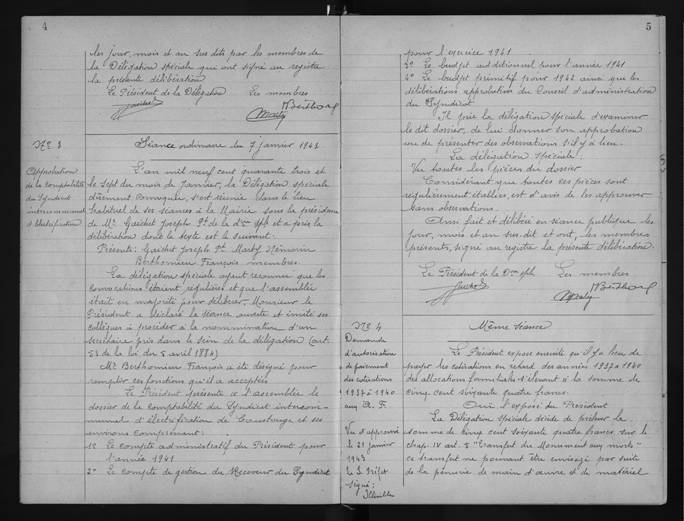 4
les jour, mois et an sus dits par les membres de
la Délégation spéciale qui ont signé au registre
la présente délibération
Le Président de la Délégation Les membres
Nº 3
Séance ordinaire du 7 janvier 1943
Approbation
de la comptabilité
du Syndicat
intercommunal
d'électrification
L'an mil neuf cent quarante trois et
le sept du mois de janvier, la Délégation spéciale
dûment convoquée s'est réunie dans le lieu
habituel de ses séances à la Mairie sous la présidence
de Mr Gaichet Joseph Pt de la don sple et a pris la
délibération dont le texte est le suivant.
Présents: Gaichet Joseph Pt Marty
Berthomieu François membres
La délégation spéciale ayant reconnu que les
convocations étaient régulières et que l'assemblée
était en majorité pour délibérer. Monsieur le
Président a déclaré la séance ouverte et invité ses
collègues à procéder à la nommination d'un
secrétaire pris dans le sein de la délégation (art.
53 de la loi du 5 avril 1884)
Mr Berthomieu François a été désigné pour
remplir ces fonctions qu'il a acceptées
Le Président présente à l'assemblée le
dossier de la comptabilité du Syndicat intercom-
munal d'électrification de et ses
environs comprenant:
1º Le compte administratif du Président pour
l'année 1941
2º Le compte de gestion du Receveur du Syndicat
5
pour l'exercice 1941
3º Le budget additionnel pour l'année 1941
4º Le budget primitif pour 1942 ainsi que les
délibérations approbation du Conseil d'administration
du Syndicat
Il prie la délégation spéciale d'examiner
le dit dossier, de lui donner son approbation
ou de présenter des observations s'il y a lieu.
La délégation spéciale:
Vu toutes les pièces du dossier
Considérant que toutes ces pièces sont
régulièrement établies, est d'avis de les approuver
sans observations.
Ainsi fait et délibéré en séance publique les
jour, mois et an sus dit et ont, les membres
présents, signé au registre la présente délibération.
Le Président de la Don sple Les membres
Nº 4
Même séance
Demande
d'autorisation
de paiement
des cotisations
1937 à 1940
aux A. F.
Vu et approuvé
le 21 janvier
1943
Le S. Préfet
signé:
Illisible
Le Président expose ensuite qu'il y a lieu de
payer les cotisations en retard des années 1937 à 1940
des allocations familiales s'élevant à la somme de
cinq cent soixante quatre francs.
Ouï l'exposé du Président
La Délégation Spéciale décide de prélever la
somme de cinq cent soixante quatre francs sur le
chap. IV art. 5 "transfert du Monument aux morts"
ce transfert ne pouvant être envisagé par suite
de la pénurie de main d'œuvre et de matériel